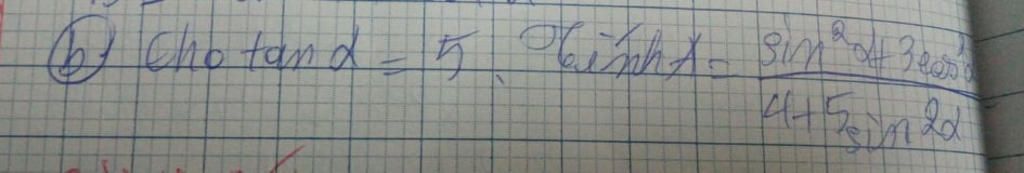 b) Cho tan α = 5. Tính A = (sin²α + 3cos²α) / (4 + 5sin²α)